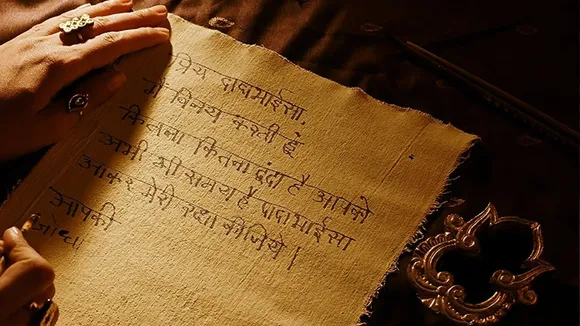 प्रिय दादाभाईसा,
मैं विनय करती हूं
कितना कितना है आपको
अभी भी समय है दादाभाईसा
आकर मेरी रक्षा कीजिये।
आपकी
जोधा।